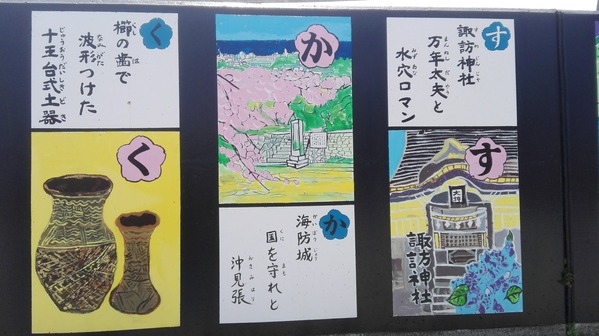 す
諏訪神社
万年太夫と
水穴ロマン
す
諏訪神社
諏方神社
か
か
海防城
国を守れと
沖見張
く
櫛の歯で
波形つけた
十王台式土器
く